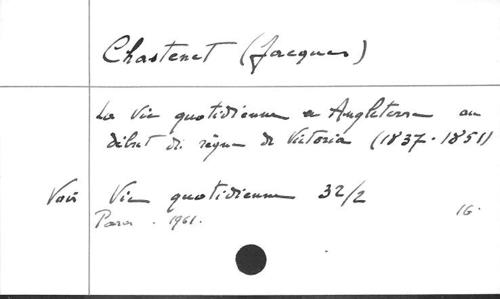 Chastenet (Jacques)
La Vie quotidienne en Angleterre au
début du règne de Victoria (1837-1851)
Voir Vie quotidienne 32/2
Paris. 1961. 16.